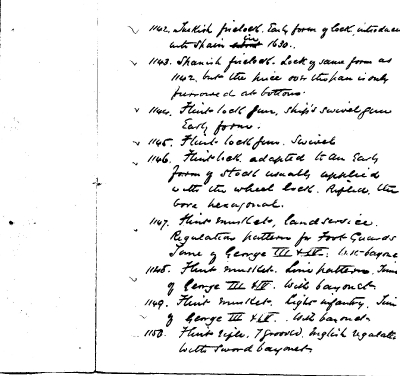 1142. Turkish firelock. Early form of lock, introduced
into Spain in 1630.
1143. Spanish firelock. Lock of same form as
1142. but the piece over the pan is only
furrowed at bottom.
1144. Flint lock gun, ship's swivel gun
Early form.
1145. Flint lock gun. Swivel
1146. Flint lock adapted to an Early
form of stock usually applied
with the wheel lock. Rifled, the
bore hexagonal.
1147. Flint musket, land service.
Regulation pattern for Foot Guards
Time of George III & IV. With bayone
1148. Flint musket. Line pattern. Time
of George III & IV. With bayonet
1149. Flint musket. Light infantry. Time
of George III & IV. With bayonet
1150. Flint rifle, 7 grooved. English regulation
With sword bayonet